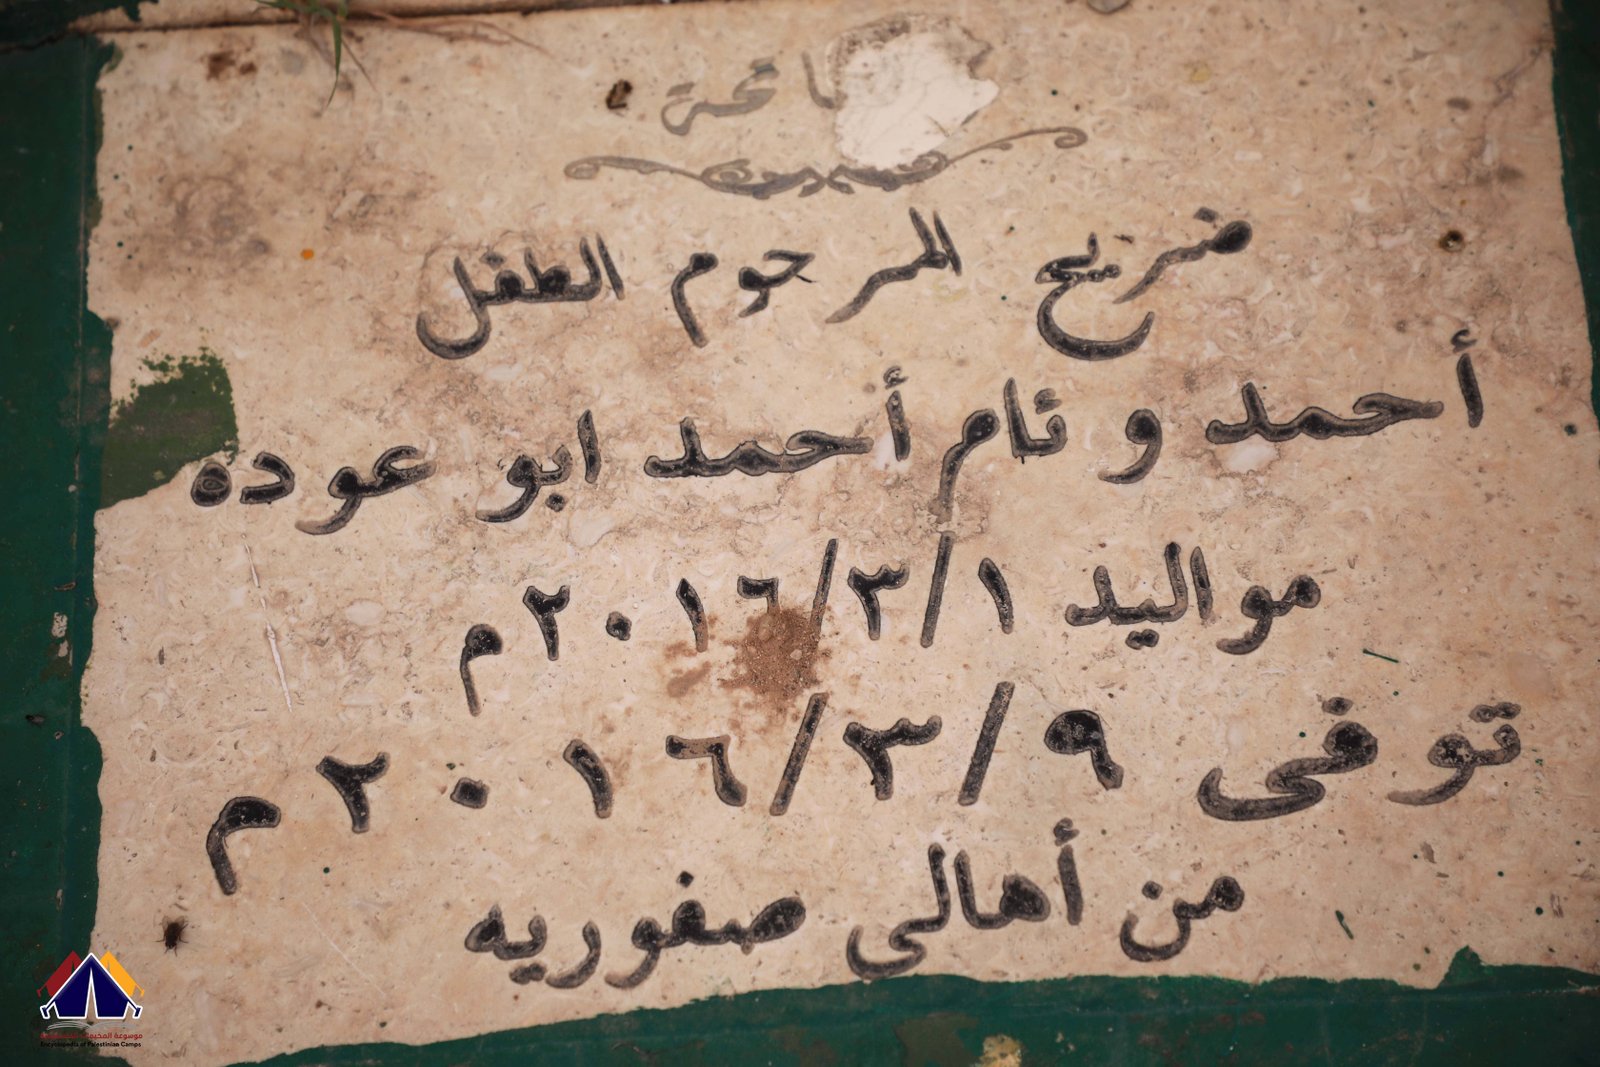 ضريح المرحوم الطفل
أحمد وئام أحمد ابو عوده
مواليد ١/٣/٢٠١٦م
توفى ٩/٣/٢٠١٦م
من أهالى صفوريه
موسوعة المخيمات الفلسطينية
Encyclopedia of Palestinian Camps